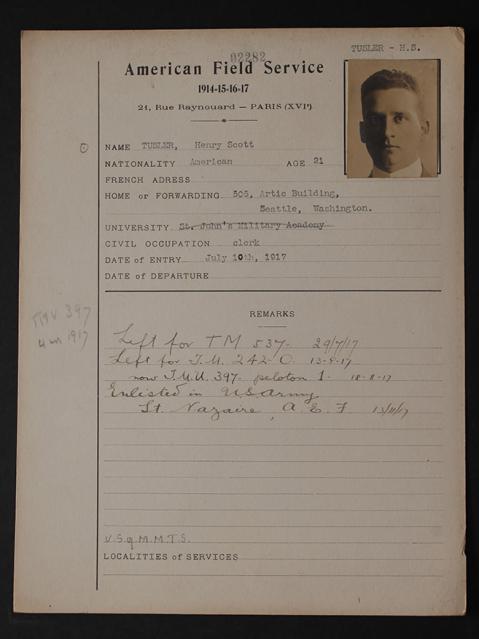 02282
TUSLER - H.S.
American Field Service
1914-15-16-17
21, Rue Raynouard — PARIS (XVIe)
NAME TUSLER, Henry Scott
NATIONALITY American AGE 21
FRENCH ADRESS
HOME or FORWARDING 505, Artic Building,
Seattle, Washington.
UNIVERSITY St. John's Military Academy
CIVIL OCCUPATION clerk
DATE of ENTRY July 10th, 1917
DATE of DEPARTURE
REMARKS
397
1917
Left for TM 537- 29/7/17
Left for T.M. 242 O. 13-9-17
now T.M.U. 397- peloton 1- 18-8-17
Enlisted in US Army
St. Nazaire, A E F 13/11/17
U.S.q M.M.T.S.
LOCALITIES of SERVICES